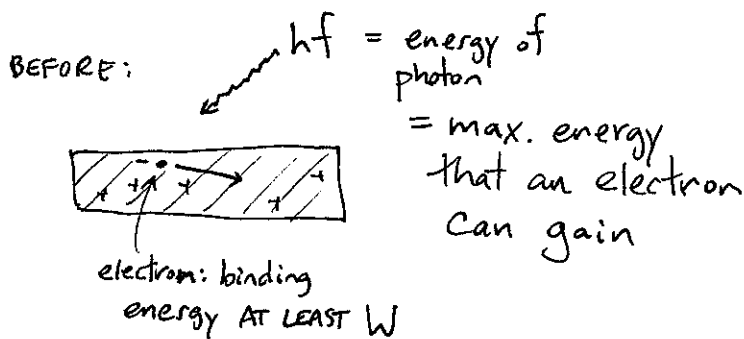 BEFORE:
hf = energy of
photon
= max. energy
that an electron
can gain
- + + + + +
electron: binding
energy AT LEAST W